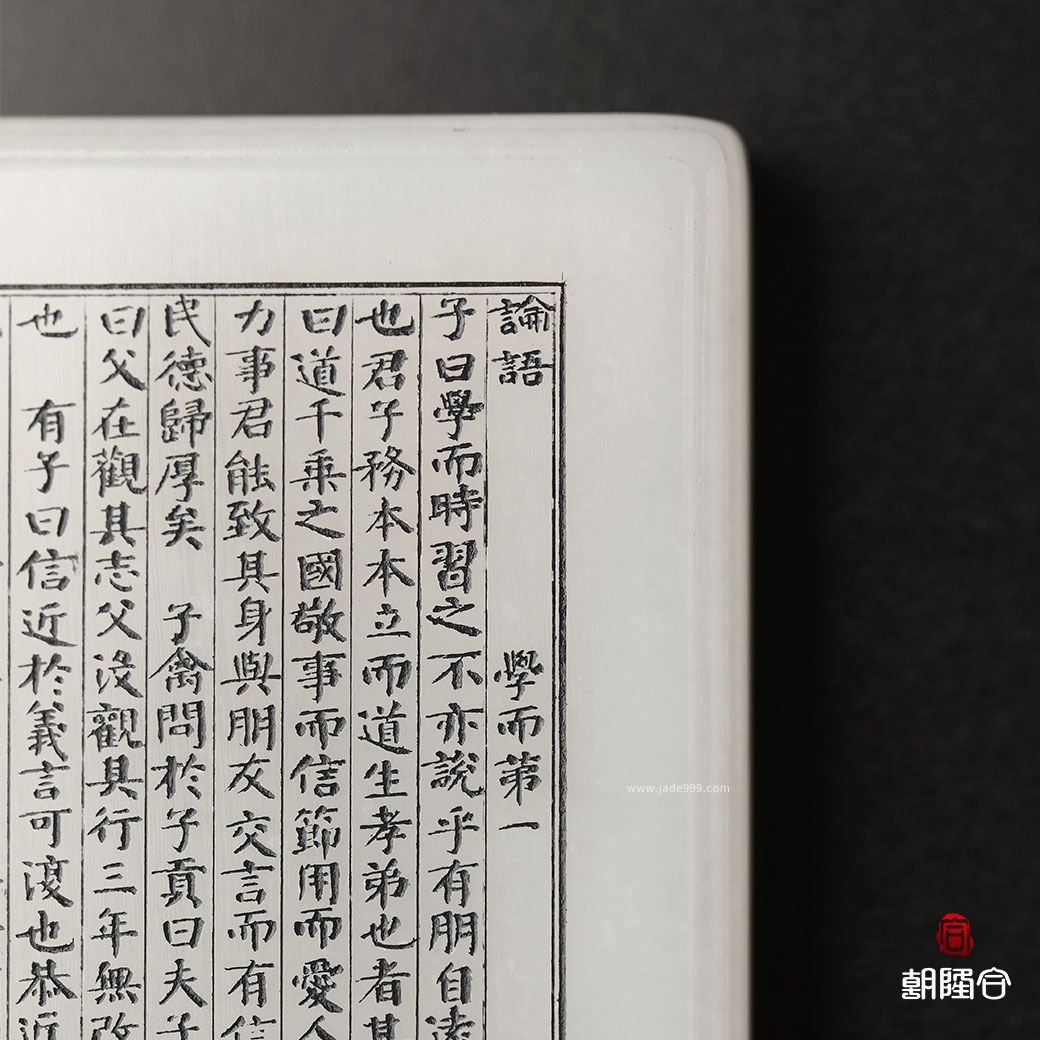 論語 學而第一
子曰學而時習之不亦説乎有朋自遠
也君子務本本立而道生孝弟也者其
曰道千乗之國敬事而信節用而愛人
力事君能致其身與朋友交言而有信
民德歸厚矣 子禽問於子貢曰夫子
曰父在觀其志父没觀其行三年無改
也 有子曰信近於義言可復也恭近
www.jade999.com
朝隆合